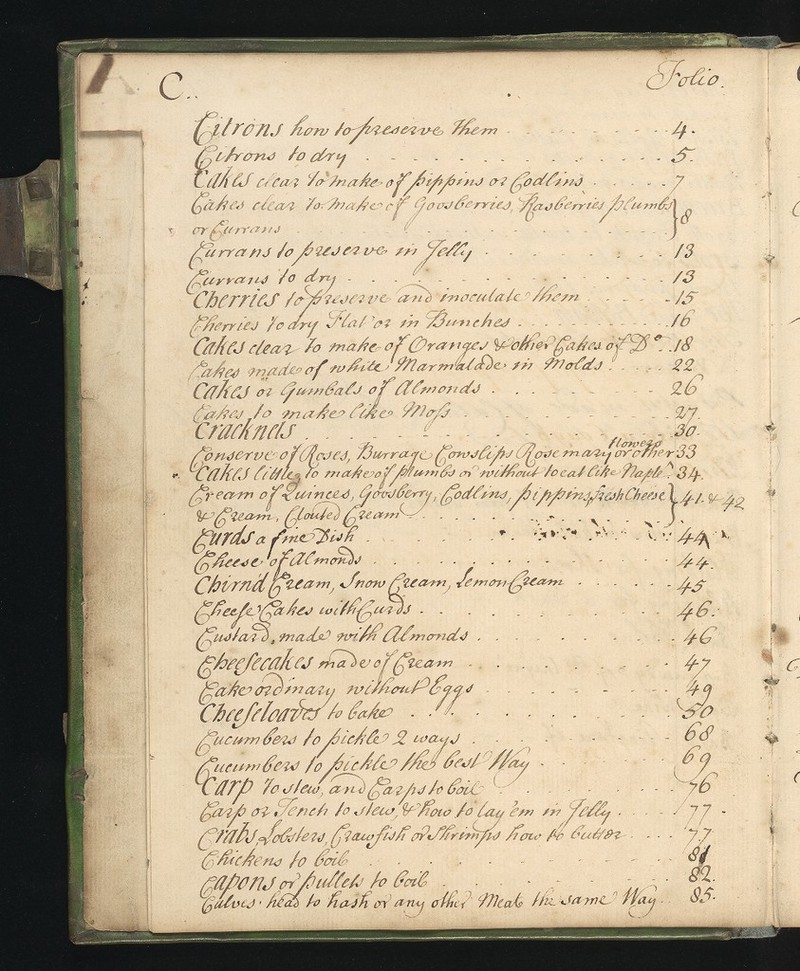 C..
Folio.
Citrons how to preserve them 4.
Citrons to dry 5.
Cakes clear to make of pippins or Codlins 7
Cakes clear to make of Goosberries, Rasberries plumbs
or Currans } 8
Currans to preserve in Jelly 13
Currans to dry 13
Cherries to preserve and inoculate them 15
Cherries to dry Flat or in Bunches 16
Cakes clear to make of Oranges & other Cakes of Do 18
Cakes made of white Marmalade in Molds 22
Cakes or Gumbals of Almonds 26
Cakes to make like Moss 27
Cracknels 30.
flowers
Conserve of Roses, Burrage Cowslips Rosemary or other 33
Cakes little to make of plumbs or without to eat like Naple 34.
Cream of Quinces, Goosberry, Codlins, pippins, fresh Cheese
& Cream, Clouted Cream } 41. & 42
Curds a fine Dish 44
Cheese of Almonds 44.
Chirnd Cream, Snow Cream, Lemon Cream 45
Cheese Cakes with Curds 46.
Custard, made with Almonds 46
Cheesecakes made of Cream 47
Cake ordinary without Eggs 49
Cheesloaves to bake 50
Cucumbers to pickle 2 ways 68
Cucumbers to pickle the best Way 69
Carp to stew, and Carps to boil 76
Carp or Tench to stew, & how to lay 'em in Jelly 77
Crabs, Lobsters, Crawfish or Shrimps how to butter 77
Chickens to boil 81
Capons or pullets to boil 82.
Calves head to hash or any other Meat the same Way 85.